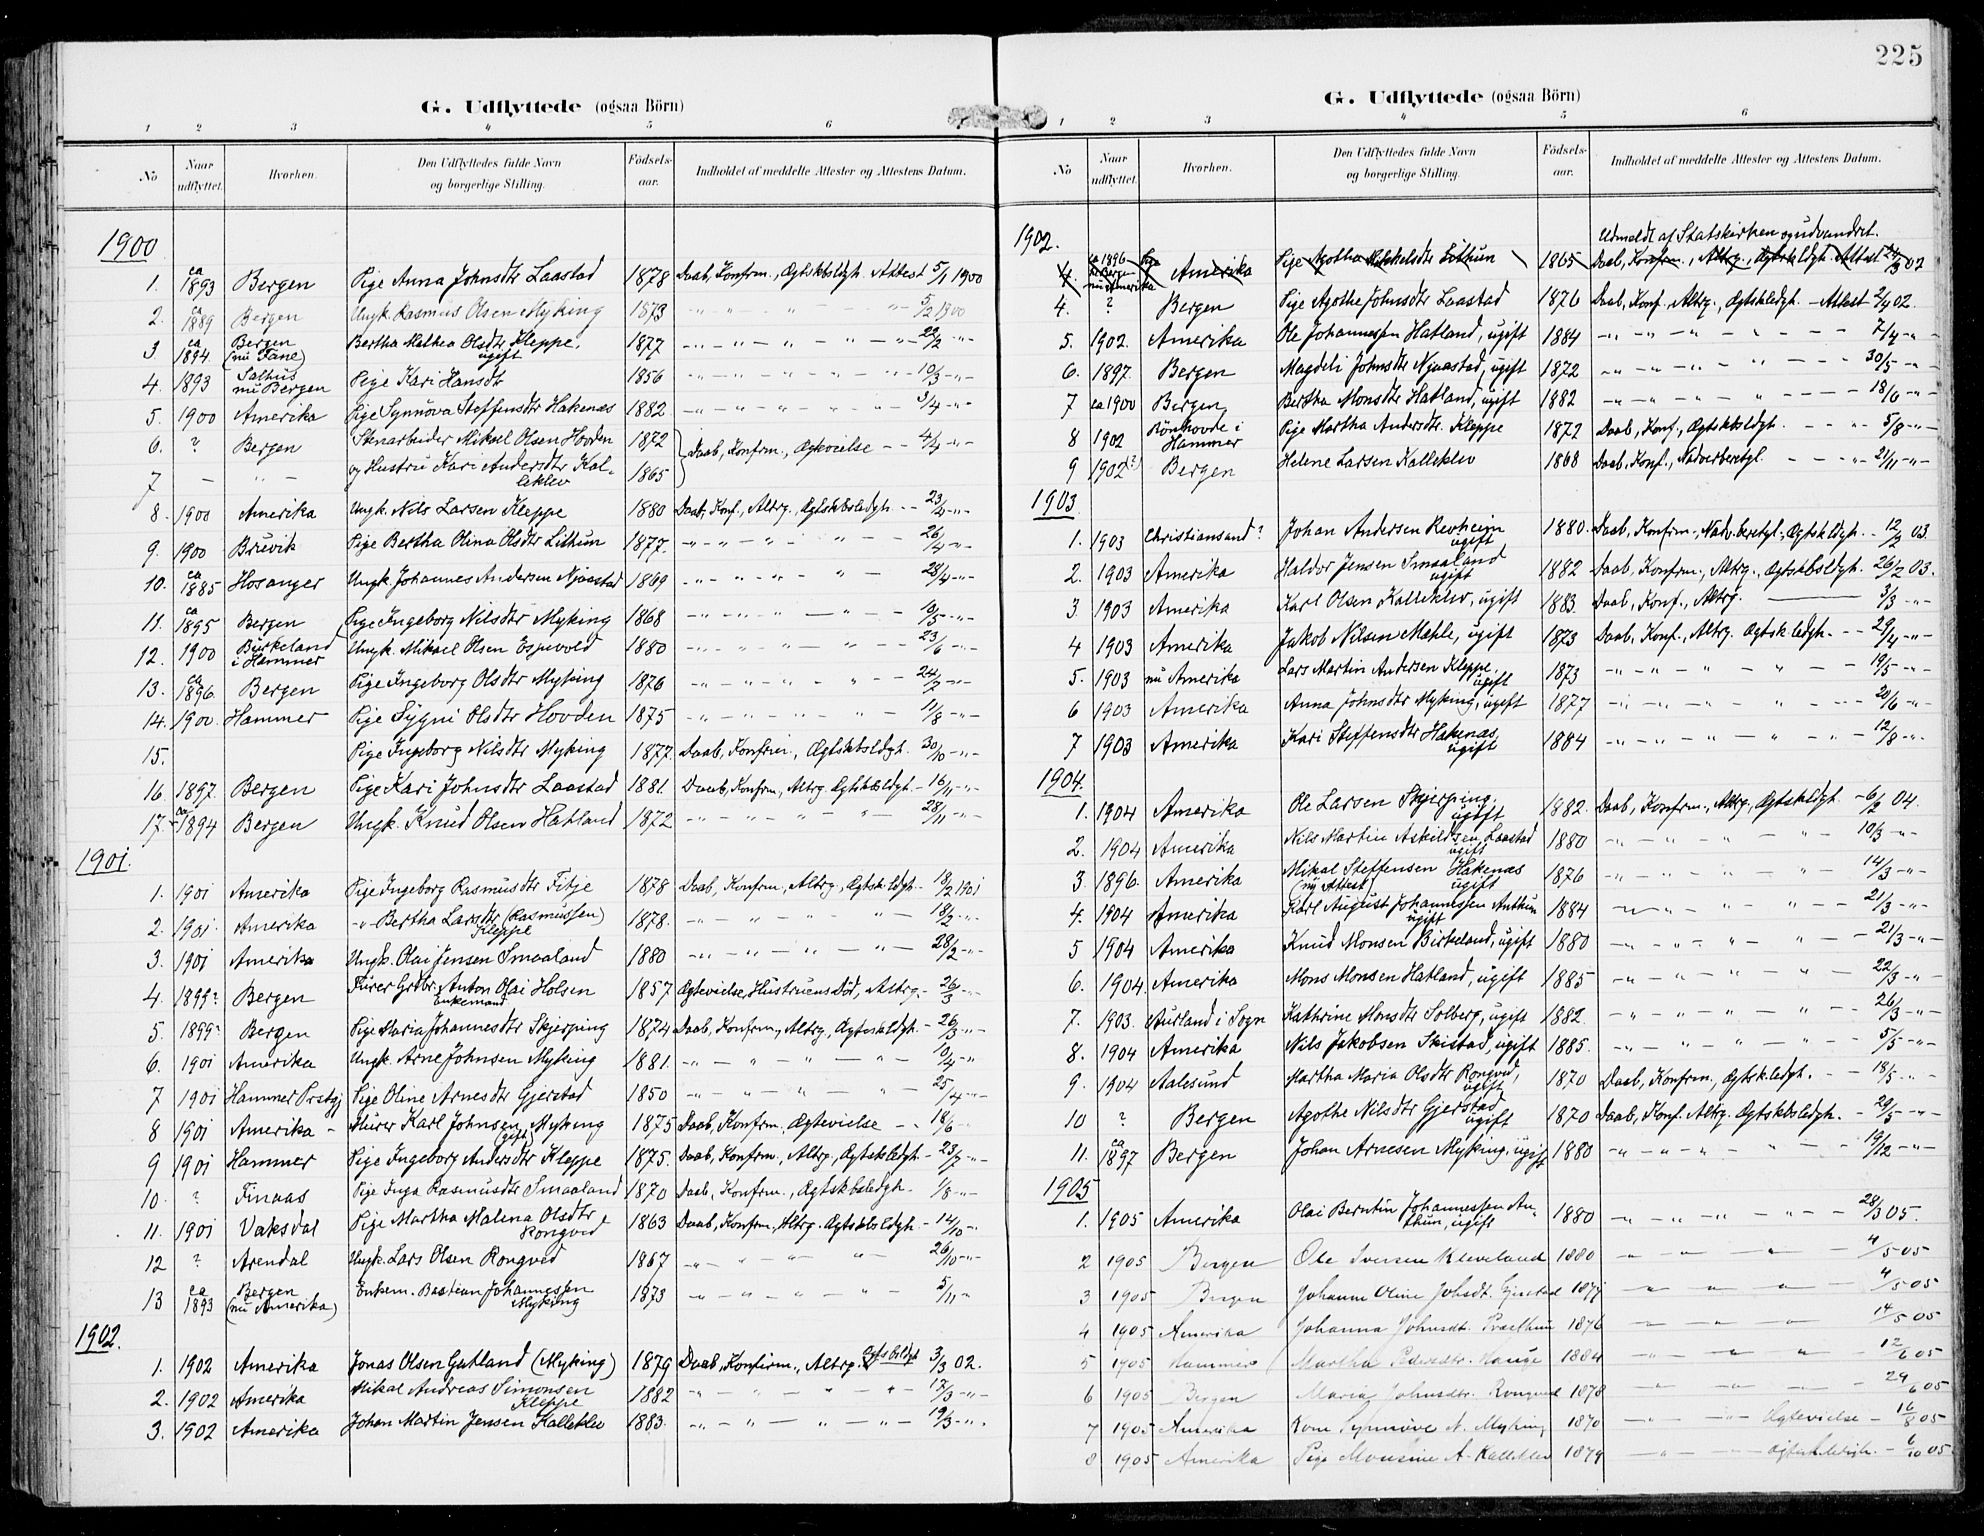 G. Udflyttede (ogsaa Börn)
1 2 3 4 5 6 7
No Naar udflyttet. Hvorhen. Den Udflyttedes fulde Navn og borgerlige Stilling. Födsels-aar. Indholdet af meddelte Attester og Attestens Datum.
1900
1. ca 1893 Bergen Pige Anna Johnsdtr Laastad 1878 Daab, Konfrm., Ægtskbsldgh. Attest 5/1 1900
2. ca 1889 Bergen Ungk. Rasmus Olsen Myking 1873 -"- " - " - "- 5/2 1900
3. ca 1894. Bergen (nu Fane) Bertha Mathea Olsdtr Kleppe, ugift 1877 -"-"-"-"-"- 22/2 -"-
4. 1893 Salhus nu Bergen Pige Kari Hansdtr 1856 -"-"-"-"-"- 10/3 -"-
5. 1900 Amerika Pige Synnöva Steffensdtr Hakenæs 1882 -"-"-"-"-"- 3/4 -"-
6. ? Bergen Stenarbeider Mikael Olsen Hovden 1872 Daab, Konfrm., Ægtevielse - - 4/4 -"-
7 - " - og Hustru Kari Andersdtr Kalleklev 1865
8. 1900 Amerika Ungk. Nils Larsen Kleppe 1880 Daab, Konf., Altrg., Ægtskbsledgh. - - 23/4 -"-
9. 1900 Bruvik Pige Bertha Olina Olsdtr Lithun 1877. -"-"-"-"-"- 26/4 -"-
10. ca 1885 Hosanger Ungk. Johannes Andersen Njaastad 1869 -"-"-"-"-"- 28/4 -"-
11. ca 1895 Bergen Pige Ingeborg Nilsdtr Myking 1868 -"-"-"-"-"- 10/5 -"-
12. 1900 Birkeland i Hammer Ungk. Mikael Olsen Espevold 1880 -"-"-"-"-"- 23/6 -"-
13. ca 1896 Bergen Pige Ingeborg Olsdtr Myking 1876 -"-"-"-"-"- 24/7 -"-
14. 1900. Hammer Pige Sygni Olsdtr Hovden 1875 -"-"-"-"-"- 11/8 -"-
15. Pige Ingeborg Nilsdtr Myking 1877. Daab, Konfrm., Ægtskbsldgh. 30/10 -"-
16 1897. Bergen Pige Kari Johnsdtr Laastad 1881 Daab, Konfrm., Altrg Ægtskbsldgh. - 16/11 -"-
17. ca 1894 Bergen Ungk. Knud Olsen Hatland 1872 -"-"-"-"-"- 28/11 -"-
1901.
1. 1901 Amerika Pige Ingeborg Rasmusdtr Fitje 1878 Daab, Konfrm., Altrg., Ægtsk.ldgh. - 18/2 1901
2. 1901. Amerika -"- Bertha Larsdtr (Rasmussen) Kleppe 1878. -"-"-"-"-"- 18/2 -"-
3. 1901 Amerika Ungk. Olai Jensen Smaaland 1880 -"-"-"-"-"- 28/2 -"-
4. 1899? Bergen Fürer Grdbr. Anton Olai Holsen Enkemand 1857 Ægtevielse, Hustruens Död, Altrg. - 26/3 -"-
5. 1899? Bergen Pige Maria Johannesdtr Skjerping 1874 Daab, Konfrm., Altrg, Ægteskldgh. - 26/3 -"-
6. 1901 Amerika Ungk. Arne Johnsen Myking 1881. -"-"-"-"-"- 10/4 -"-
7 1901 Hammer Prstgj Pige Oline Arnesdtr Gjerstad 1850 -"-"-"-"-"- 25/4 -"-
8 1901 Amerika - Murer Karl Johnsen Myking (gift) 1875 Daab, Konfrm., Ægtevielse - - 18/6 -"-
9 1901 Hammer Pige Ingeborg Andersdtr Kleppe 1875. Daab, Konfrm., Altrg., Ægtskledgh - 23/7 -"-
10. ? Finaas Pige Inga Rasmusdtr Smaaland 1870 Daab, Konfrm., Ægtskbsledgh. - 1/8 -"-
11. 1901 Vaksdal Pige Martha Malena Olsdtr Rongved 1863 Daab, Konfrm., Altrg. Ægtskbsldgh. - 14/10 -"-
12 ? Arendal Ungk. Lars Olsen Rongved 1867 -"-"-"-"-"- 26/10 -"-
13 ca 1893 Bergen (nu Amerika) Enkem. Bastian Johannessen Myking 1873 -"-"-"-"-"- 5/11 -"-
1902.
1. 1902 Amerika Jonas Olsen Gatland (Myking) 1879 Daab, Konfirm., Altrg. Ægtskbsldgh 3/3 02.
2. 1902 Amerika Mikal Andreas Simonsen Kleppe 1882 -"-"-"-"-"- 17/3 -"-
3. 1902 Amerika Johan Martin Jensen Kalleklev 1883. -"-"-"-"-"- 19/3 -"-
225
G. Udflyttede (ogsaa Börn)
1 2 3 4 5 6
No Naar udflyttet. Hvorhen. Den Udflyttedes fulde Navn og borgerlige Stilling. Födsels-aar. Indholdet af meddelte Attester og Attestens Datum.
1902.
Udmeldt af Statskirken og udvandret.
4. ca 1896 Bergen nu Amerika Amerika Pige Agotha Mikkelsdtr Lithun 1865 Daab, Konfrm., Altrg., Ægtskldgh. Attest 24/3 02
4. ? Bergen Pige Agothe Johnsdtr Laastad 1876 Daab, Konf., Altrg., Ægtskledgh. - Attest 2/4 02.
5. 1902. Amerika Ole Johannessen Hatland, ugift 1884 -"-"-"-"-"- 7/4 -"-
6. 1897. Bergen Magdeli Johnsdtr Njaastad, ugift 1872 -"-"-"-"-"- 30/5 -"-
7 ca 1900 Bergen, Bertha Monsdtr Hatland, ugift 1882 -"-"-"-"-"- 18/6 -"-
8 1902 Rönhovde i Hammer Pige Martha Andersdtr. Kleppe 1872 Daab, Konf., Ægtskbsldgh. - - - 5/8 -"-
9 1902(?) Bergen Helene Larsen Kalleklev 1868 Daab, Konf., Nadverberetgl. - - -"- 21/11 -"-
1903.
1. 1903 Christiansand? Johan Andersen Revheim ugift 1880. Daab, Konfrm., Nadv.beretgl., Ægtskldgh. - 12/2 03.
2. 1903 Amerika Haldor Jensen Smaaland ugift 1882 Daab, Konfrm., Altrg., Ægtskbsldgh. 26/2 03.
3 1903 Amerika Karl Olsen Kalleklev, ugift 1883. Daab, Konf., Altrg. 3/3 -"-
4 1903 Amerika Jakob Nilsen Mæhle, ugift 1873 Daab, Konf., Altrg. Ægtsk.ledgh. - - 29/4 -"-
5. 1903 nu Amerika Lars Martin Andersen Kleppe, ugift 1873 -"-"-"-"-"- 19/5 -"-
6 1903 Amerika Anna Johnsdtr Myking, ugift 1877 -"-"-"-"-"- 20/6 -"-
7 1903 Amerika Kari Steffensdtr Hakenæs, ugift 1884 -"-"-"-"-"- 12/8 -"-
1904.
1. 1904 Amerika Ole Larsen Skjerping, ugift 1882. Daab, Konfrm., Altrg., Ægtskldgh. - 6/2 04.
2. 1904 Amerika Nils Martin Askildsen Laastad ugift 1880 -"-"-"-"-"- 10/3 -"-
3 1896. Amerika Mikal Steffensen Hakenæs (ny Attest) ugift 1876 -"-"-"-"-"- 14/3 -"-
4. 1904 Amerika Karl August Johannessen Anthun ugift 1884 -"-"-"-"-"- 21/3 -"-
5 1904 Amerika Knud Monsen Birkeland, ugift 1880 -"-"-"-"-"- 21/3 -"-
6. 1904. Amerika Mons Monsen Hatland, ugift 1885 -"-"-"-"-"- 22/3 -"-
7. 1903. Aurland i Sogn Kathrine Monsdtr Solberg, ugift 1882. -"-"-"-"-"- 26/3 -"-
8. 1904 Amerika Nils Jakobsen Skistad, ugift 1885. -"-"-"-"-"- 5/5 -"-
9. 1904 Aalesund Martha Maria Olsdtr Rongved, ugift 1870 Daab, Konfrm., Ægtskledgh. - - 18/5 -"-
10 ? Bergen Agothe Nilsdtr Gjerstad ugift 1870 Daab, Konf. Altrg. Ægtskbsledgh. - 29/5 -"-
11. ca 1897 Bergen Johan Arnesen Myking, ugift 1880 -"-"-"-"-"- 19/12 -"-
1905
1. 1905 Amerika Olai Berntin Johannessen Anthun, ugift 1880 -"-"-"-"-"- 28/3 05.
2 1905 Bergen Ole Iversen Kleveland 1880 -"-"-"-"- 4/5 05
3 1905 Bergen Johanne Oline Johsdt. Gjerstad 1877 -"-"-"-"- 4/5 05
4 1905 Amerika Johanna Johnsdt. 1876 -"-"-"-"- 14/5 05
5 1905 Hammer Martha Pedersdtr. Hauge 1884 -"-"-"-"- 12/6 05
6 1905 Bergen Maria Johnsdtr. Rongved 1878 -"-"-"-"- 29/6 05
7 1905 Amerika Kone Synnöve N. Myking 1870 -"-"- Ægtevielse - 16/8 05
8 1905 Amerika Pige Monsine A. Kalleklev 1879 -"-"- ægteskldgh. - 6/10 05